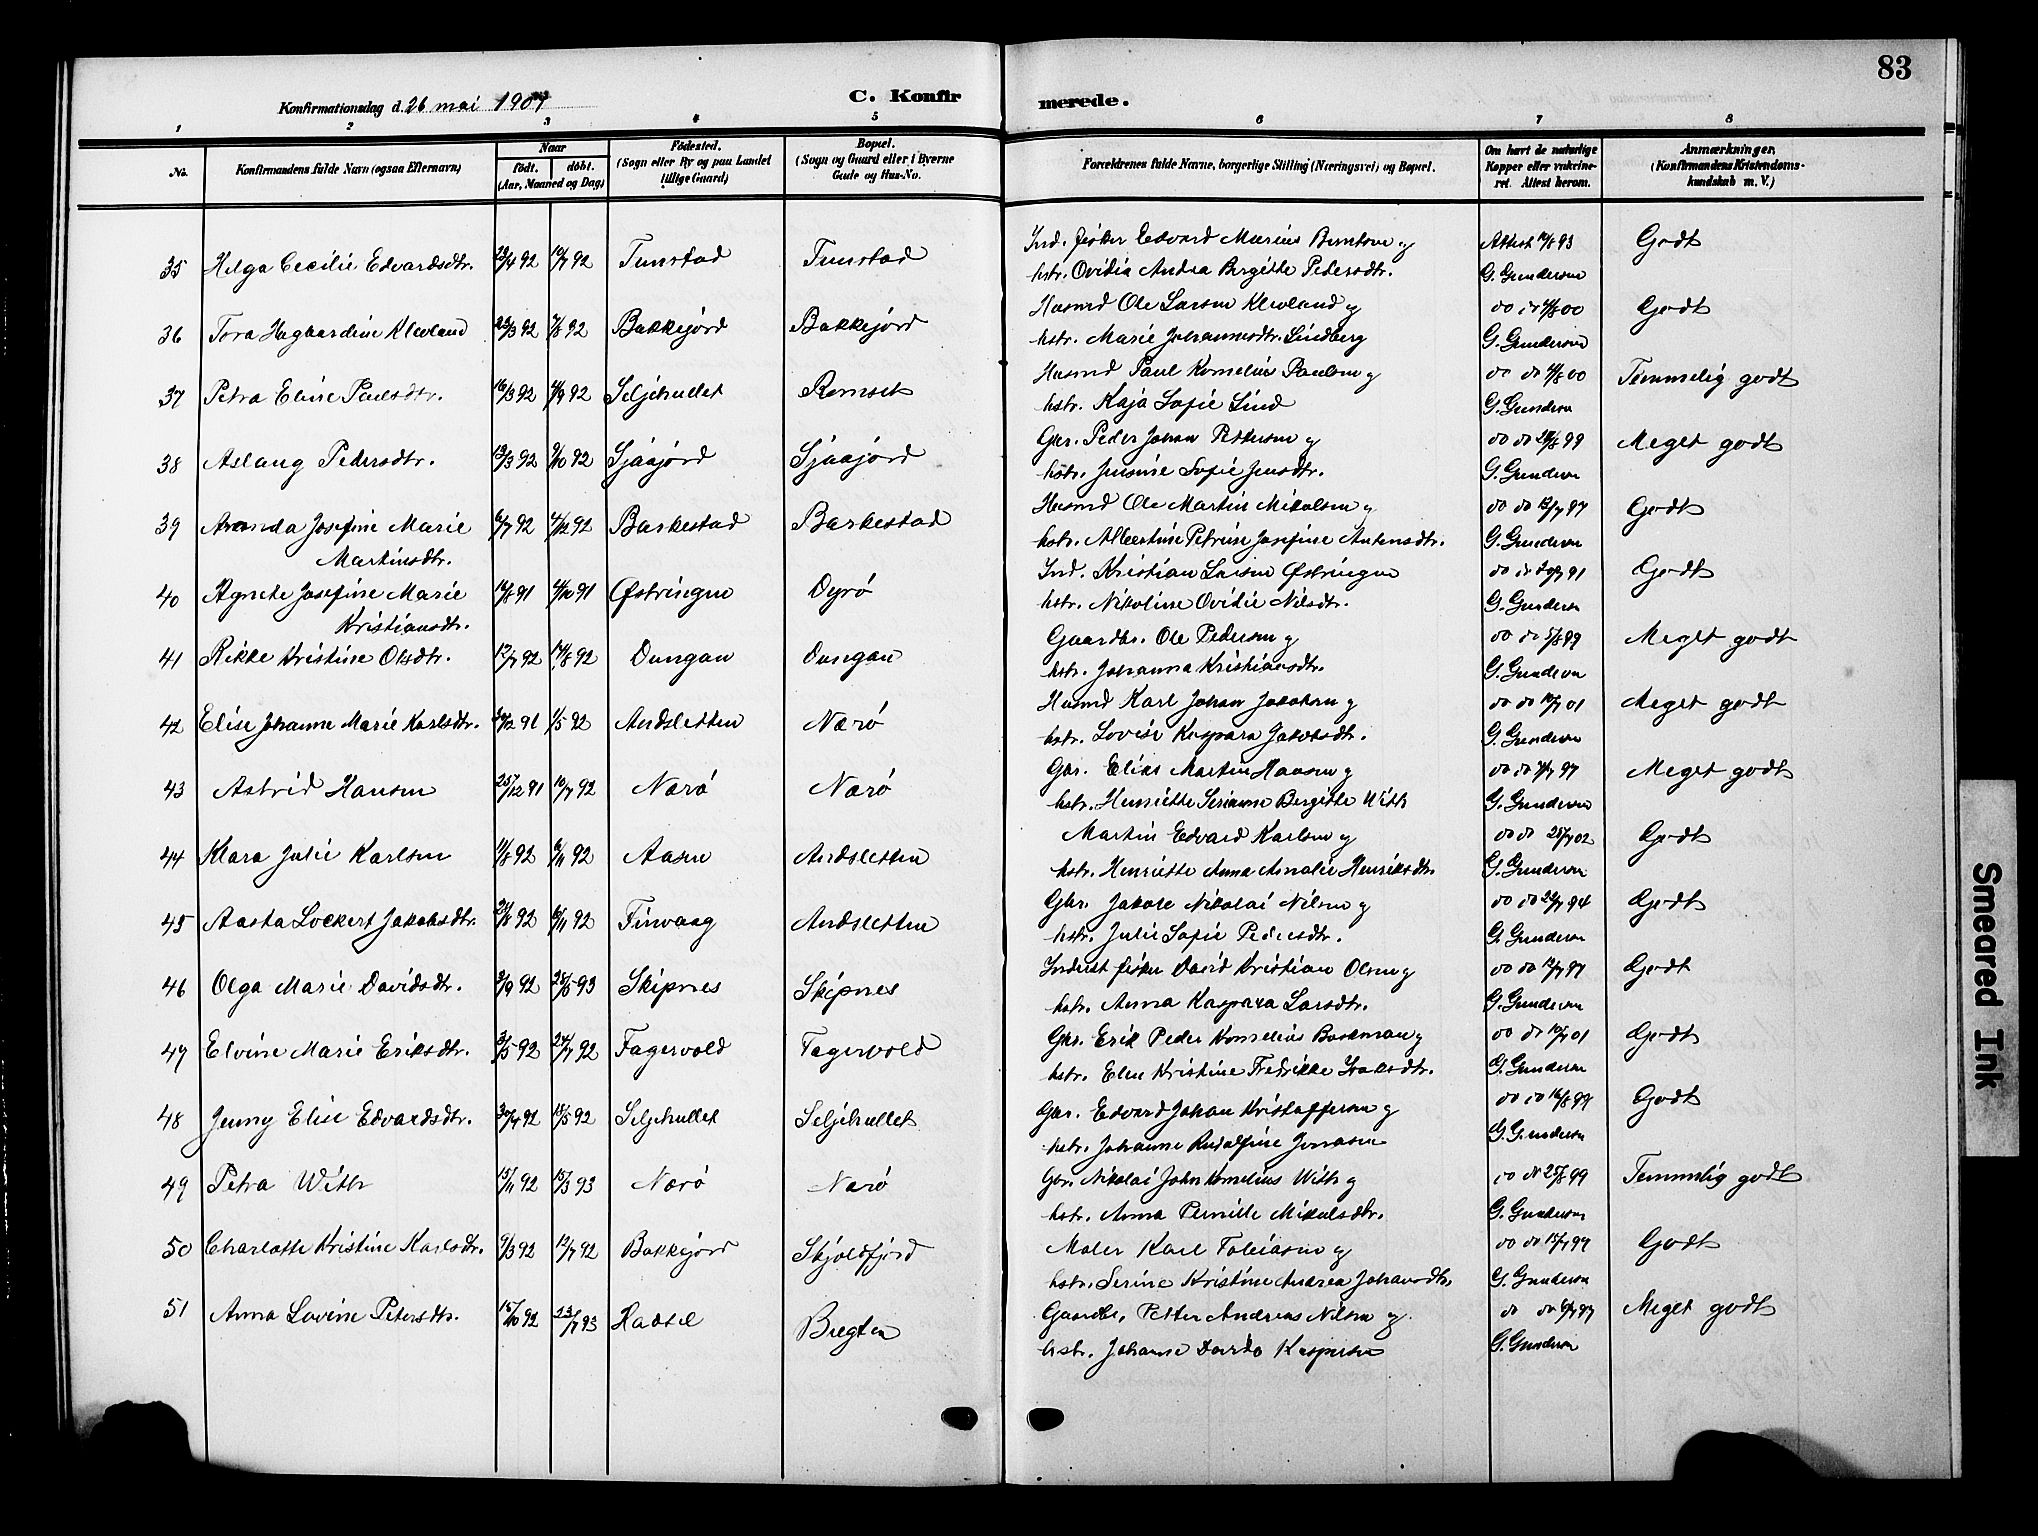 83
Konfirmationsdag d. 26 mai 1907
C. Konfirmerede.
1 2 3 4 5 6 7 8
No.
Konfirmandens fulde Navn (ogsaa Efternavn)
Naar
født. døbt.
(Aar, Maaned og Dag)
Fødested.
(Sogn eller By og paa Landet
tillige Gaard)
Bopæl.
(Sogn og Gaard eller i Byerne
Gade og Hus-No.
Forældrenes fulde Navne, borgerlige Stilling (Næringsvei) og Bopæl.
Om havt de naturlige
Kopper eller vakcine-
ret. Attest herom.
Anmærkninger,
(Konfirmandens Kristendoms-
kundskab m. V.)
35 Helga Cecilie Edvardsdtr. 23/4 92 10/7 92 Tunstad Tunstad Ind. fisker Edvard Marius Berntsen og Attest 10/8 93 Godt
hstr. Ovidia Andrea Bergitte Pedersdtr. G. Gundersen
36 Tora Hagbardine Klevland 23/3 92 7/8 92 Bakkejord Bakkejord Husmd Ole Larsen Klevland og do do 4/8 00 Godt
hstr. Marie Johannesdtr. Lindberg G. Gundersen
37 Petra Elise Paulsdtr. 16/3 92 4/9 92 Seljehullet Romsek Husmd Paul Kornelius Paulsen og do do 4/8 00 Temmelig godt
hstr. Kaja Sofie Lind G. Gundersen
38 Aslaug Pedersdtr. 13/3 92 9/10 92 Sjåajord Sjåajord Gbr. Peder Johan Pettersen og do do 28/8 99 Meget godt
hstr. Jensine Sofie Jensdtr. G. Gundersen
39 Amanda Josefine Marie 6/7 92 4/12 92 Barkestad Barkestad Husmd Ole Martin Mikalsen og do do 12/7 97 Godt
Martinsdtr. hstr. Albertine Petrine Josefine Antonsdtr. G. Gundersen
40 Agnete Josefine Marie 10/8 91 4/10 91 Østringen Dyrø Ind. Kristian Larsen Østringen do do 20/9 91 Godt
Kristiansdtr. hstr. Nikoline Ovidie Nilsdtr. G. Gundersen
41 Rikke Kristine Olsdtr. 12/7 92 14/8 92 Dungan Dungan Gaardbr. Ole Pedersen og do do 5/8 99 Meget godt
hstr. Johanna Kristiansdtr. G. Gundersen
42 Elise Johanne Marie Karlsdtr. 30/12 91 1/5 92 Andsletten Nærø Husmd Karl Johan Jakobsen og do do 10/7 01 Meget godt
hstr. Lovise Kaspara Jakobsdtr. G. Gundersen
43 Astrid Hansen 25/12 91 10/7 92 Nærø Nærø Gbr. Elias Martin Hansen og do do 7/7 97 Meget godt
hstr. Henriette Serianne Bergitte With G. Gundersen
44 Klara Julie Karlsen 11/8 92 6/11 92 Aasen Andsletten Martin Edvard Karlsen og do do 25/7 02 Godt
hstr. Henriette Anna Amalie Henriksdtr. G. Gundersen
45 Aasta Lockert Jakobsdtr. 24/8 92 6/11 92 Finvaag Andsletten Gbr. Jakob Nikolai Nilsen og do do 22/7 94 Godt
hstr. Julie Sofie Pedersdtr. G. Gundersen
46 Olga Marie Davidsdtr. 3/9 92 28/5 93 Skipnes Skipnes Inderst fisker David Kristian Olsen og do do 12/7 97 Godt
hstr. Anna Kaspara Larsdtr. G. Gundersen
49 Elvine Marie Eriksdtr. 3/5 92 24/7 92 Fagervold Fagervold Gbr. Erik Peder Kornelius Bookman og do do 10/7 01 Godt
hstr. Elen Kristine Fredrikke Isaksdtr. G. Gundersen
48 Jenny Elise Edvardsdtr. 30/4 92 15/5 92 Seljehullet Seljehullet Gbr. Edvard Johan Kristoffersen og do do 16/8 99 Godt
hstr. Johanne Rudolfine Jonasen G. Gundersen
49 Petra With 15/11 92 15/3 93 Nærø Nærø Gbr. Nikolai John Kornelius With og do do 25/8 99 Temmelig godt
hstr. Anna Pernille Mikalsdtr. G. Gundersen
50 Charlotte Kristine Karlsdtr. 9/3 92 12/7 92 Bakkejord Skjoldfjord Maler Karl Tobiasen og do do 15/7 99 Godt
hstr. Serine Kristine Andrea Johansdtr. G. Gundersen
51 Anna Lovine Petersdtr. 15/10 92 23/7 93 Hadsel Bregten Gaardbr. Petter Andreas Nilsen og do do 6/7 97 Meget godt
hstr. Johanne Kaspersen G. Gundersen
Smeared Ink